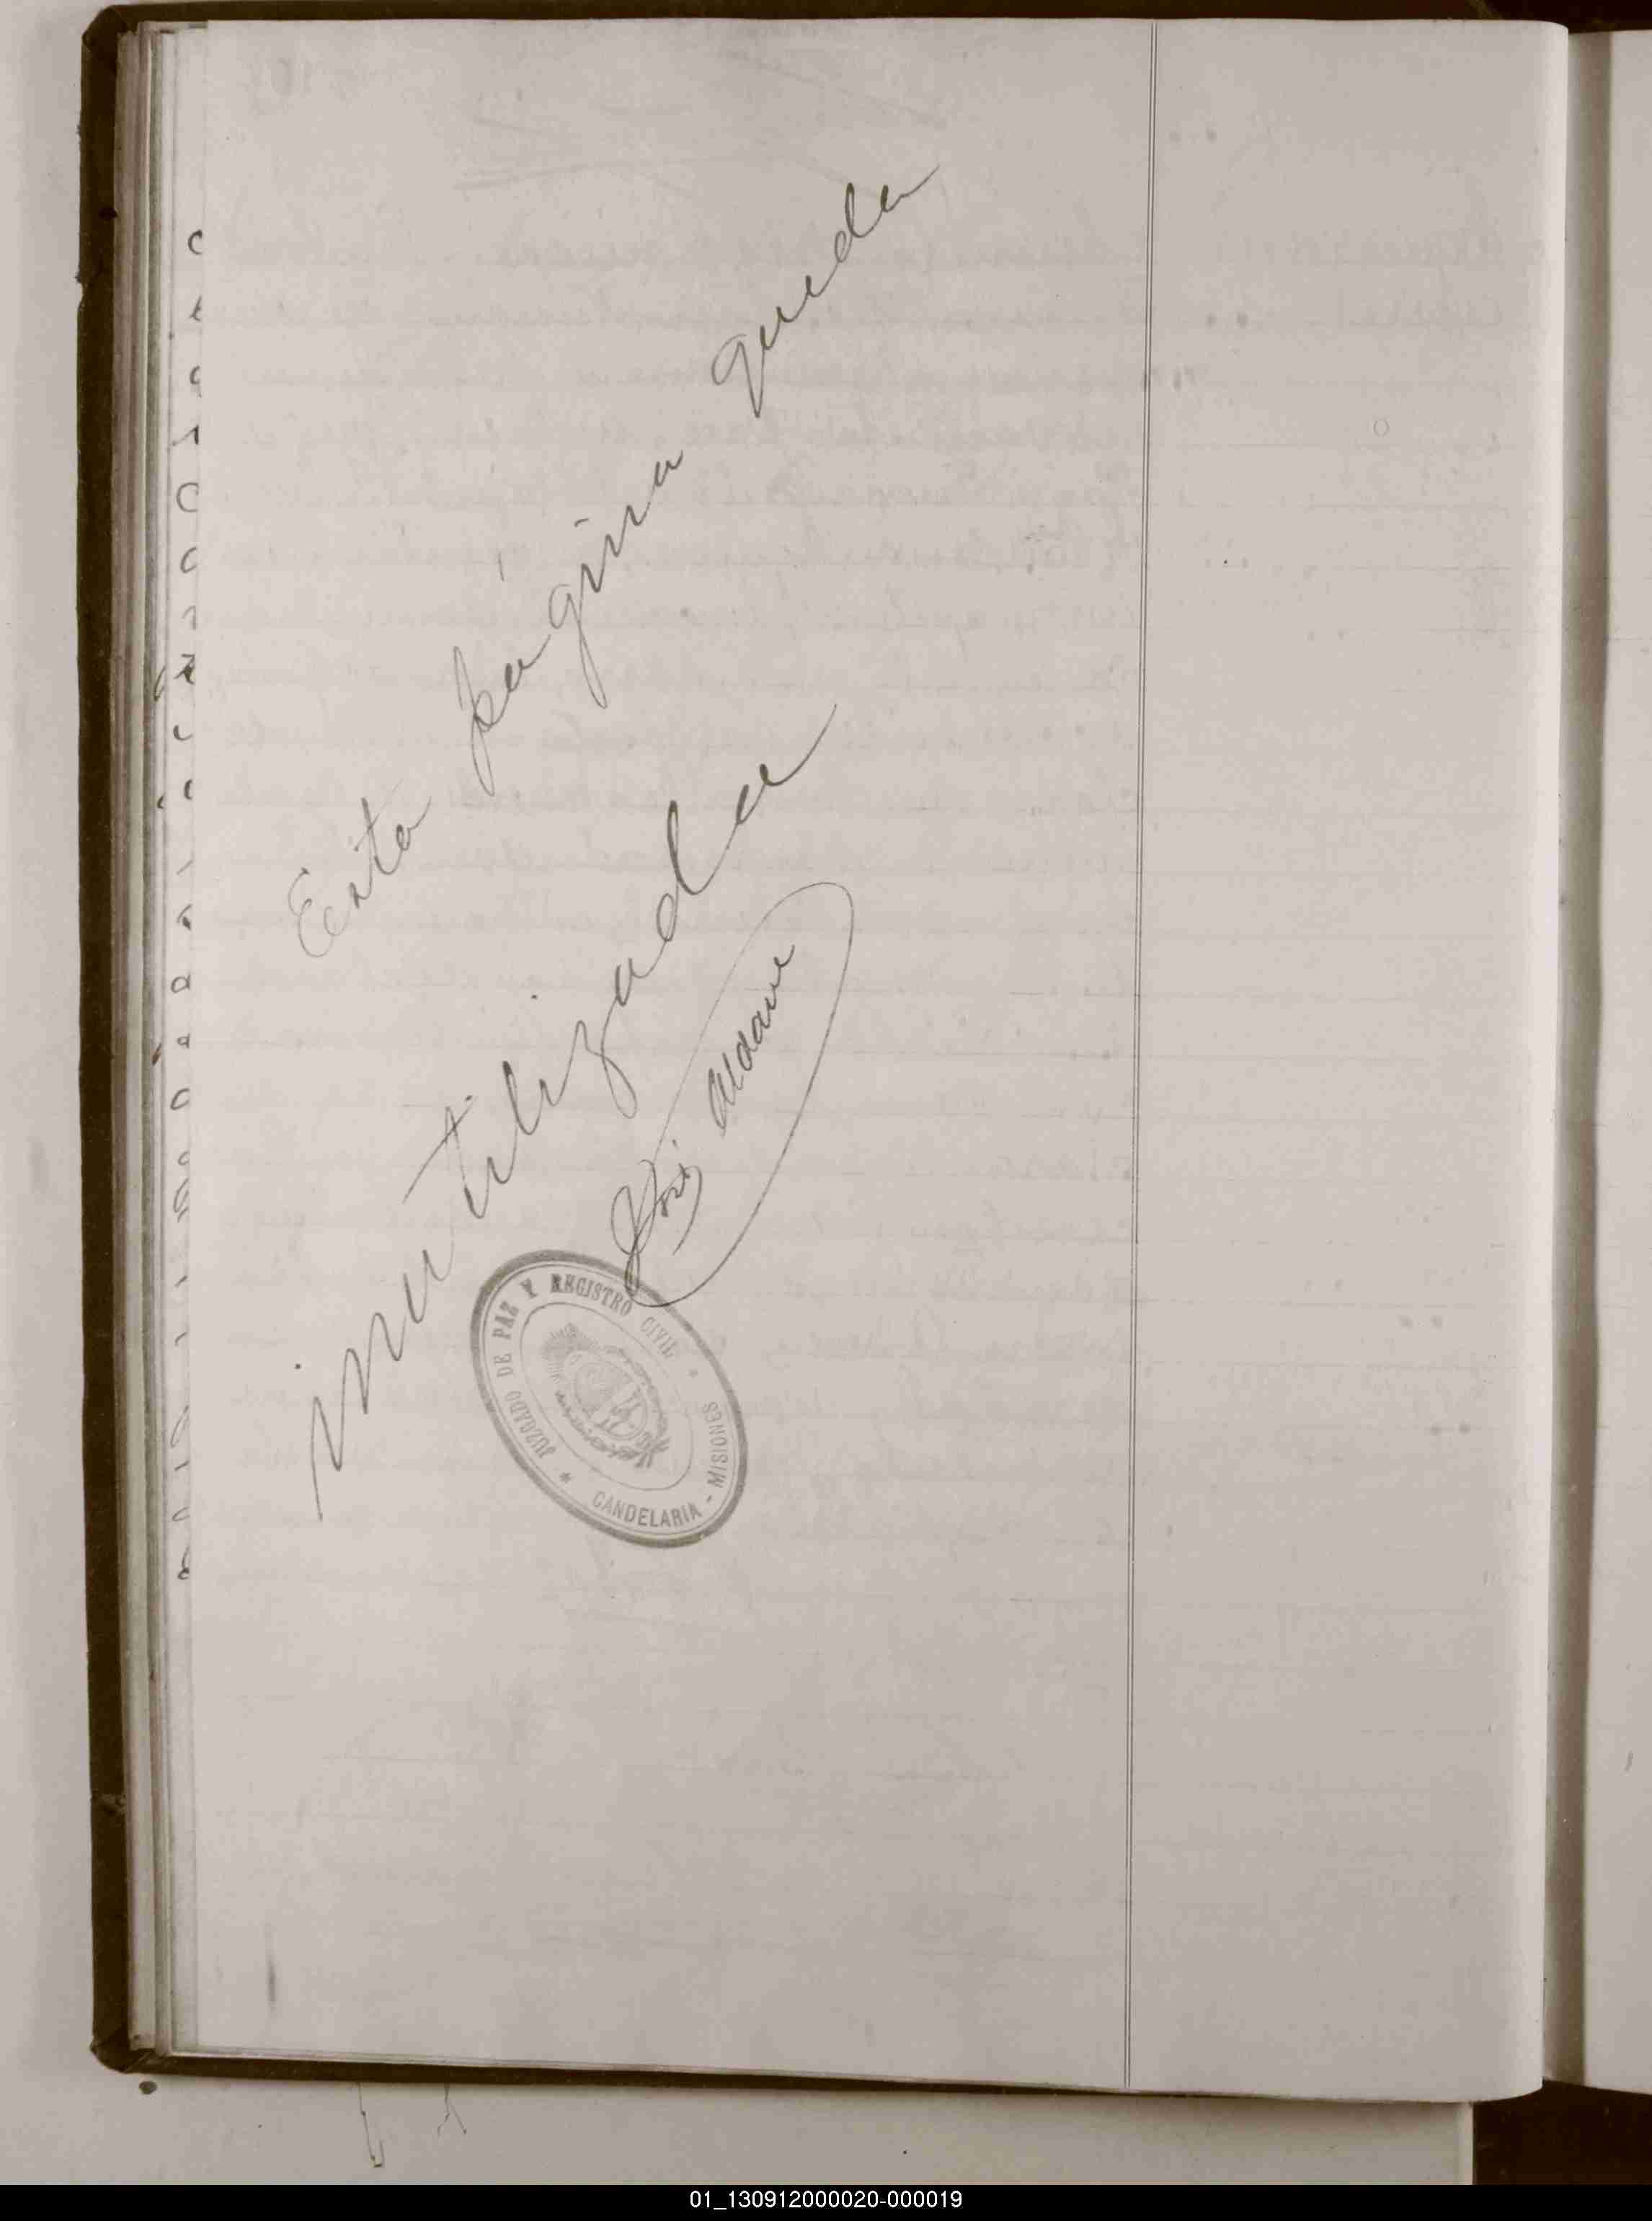 Esta página queda
inutilizada
José Aldave
JUZGADO DE PAZ Y REGISTRO CIVIL
* CANDELARIA - MISIONES *
01_130912000020-000019